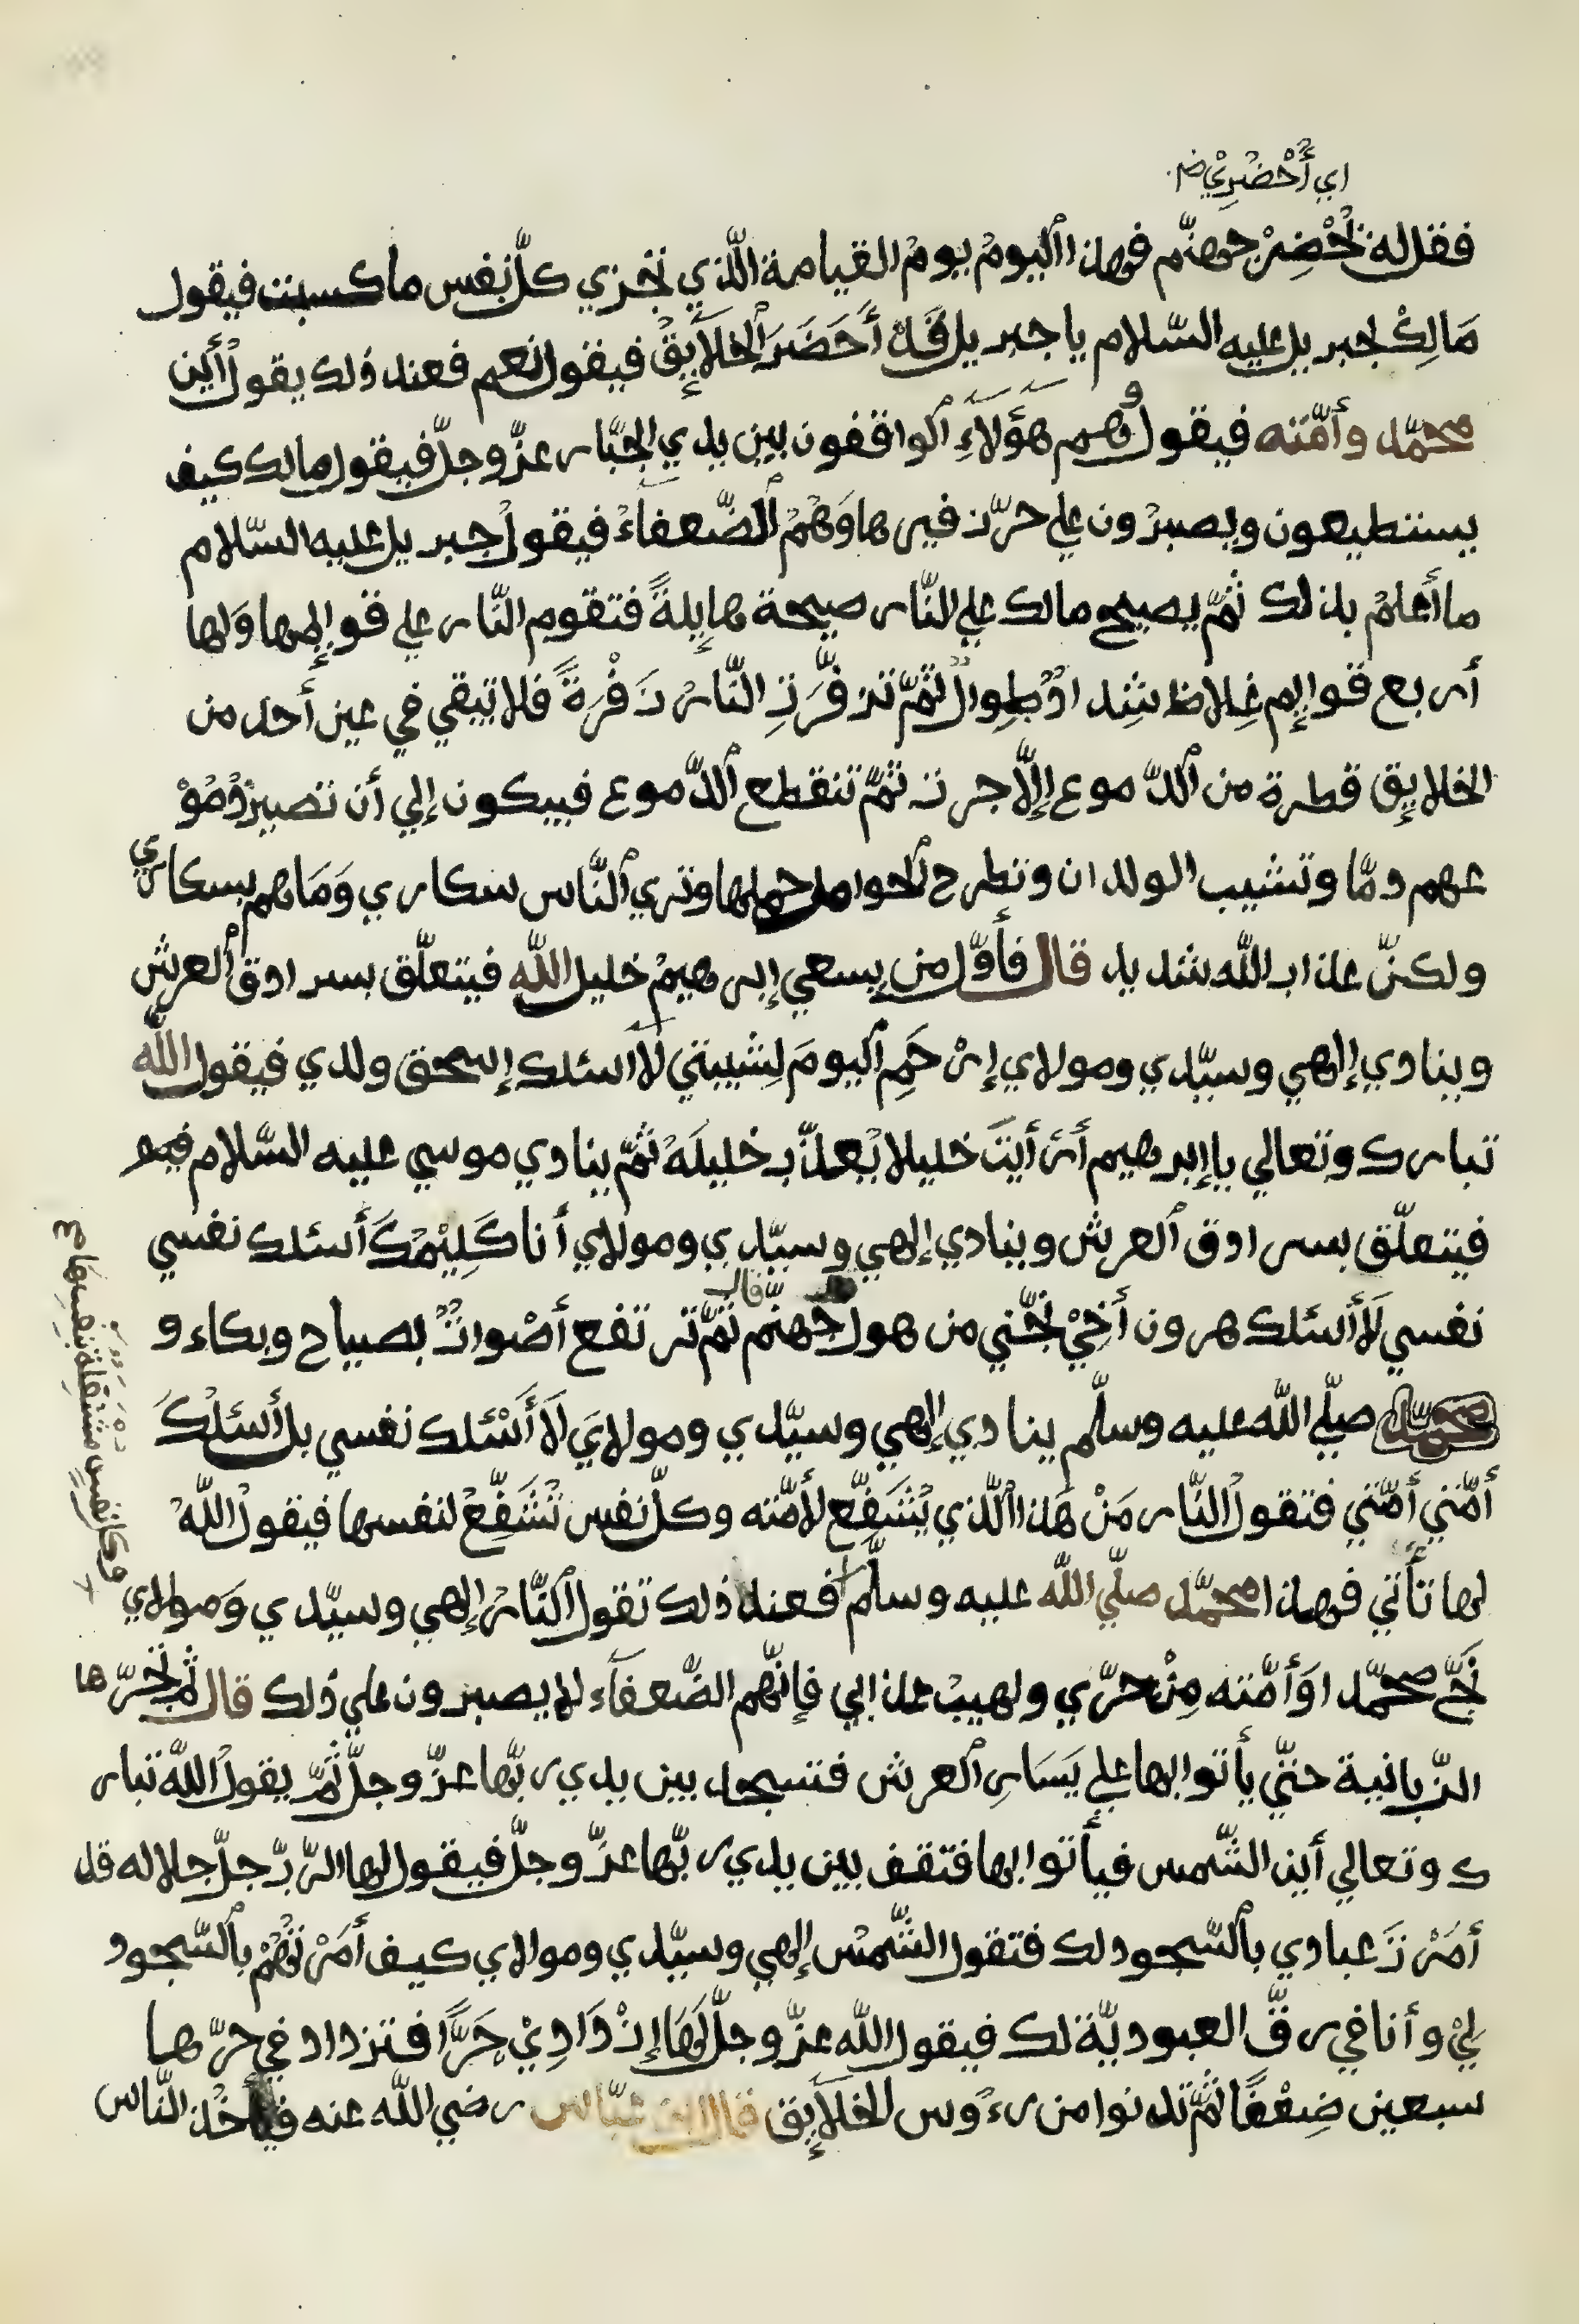 اي أُحْضُرِيْ
فقل له تُحْضِرْ جهنّم فهذا اليومُ يومُ القيامة الّذي تجزي كلّ نفس ما كسبت فيقول
مَالِكْ لجبريل عليه السّلام يا جبريل قَدْ أَحَضَرَ الخلَايِقْ فيقول نعم فعند ذلك يقول أين
محمّد وأمّته فيقول هم هَؤَلَاءِ الواقفون بين يدي الجبّار عزّ وجلّ فيقول مالك كيف
يستطيعون ويصبرُون علي حرّ زفيرها وَهُمْ الضّعفاءْ فيقول جبريل عليه السّلام
ما أعلمْ بذلك ثمّ يصيح مالك علي النّار صيحة هايِلةً فتقوم النّار علي قوايِمها ولها
أربع قوايِم غِلاظ شِداد طِوال ثمّ تزفّرَتِ النّارُ زَفْرَةً فلا تبقي في عين أحد من
الخلايِق قطرة من الدّموع إلّا جرت ثمّ تنقطع الدّموع فيبكون إلي أن تصير دُمُوْ
عهم دمّا وتشيب الولدان وتطرح الحوامل حملها وتري النّاس سكاري وَمَا هم بسكاري
ولكنّ عذاب اللّه شديد قال فأوّل من يسعي إبرهيمْ خليل اللّه فيتعلّق بسرادق العرش
وينادي إلهي وسيّدي ومولاي إرْحَمِ اليومَ لِشيبتي لا اسئلك إسحق ولدي فيقول اللّه
تبارك وتعالي يا إبرهيم أرأيتَ خليلا يُعذّب خليلَهُ ثمّ ينادي موسي عليه السّلام
فيتعلّق بسرادق العرش وينادي إلهي وسيّدي ومولاي أنا كَلِيْمُكَ أسئلك نفسي
نفسي لَا أسئلك هرون أخِيْ نجّني من هول جهنّم ثمّ ترتفع أصْواتْ بصياح وبكاء و
قال
محمّد صلّي اللّه عليه وسلّم ينادي إلهي وسيّدي ومولايَ لَا أَسْئلك نفسي بل أسئلُكَ
أمّتي أمّتي فتقول النّار مَنْ هَذا الّذي يُشَفِّع لأمّته وكلّ نفس تُشَفِّعْ لنفسها فيقول اللّهُ
لها تأتي فهذا محمّد صلّي اللّه عليه وسلّم فعند ذلك تقول النّارُ إلهي وسيّدي وَمولاي
نَجِّ محمّدا وَأمّته مِنْ حرّي ولهيبْ عذابي فإنّهم الضّعفَاء لا يصبرون علي ذلك قال ثمّ تجرّها
الزّبانية حتّي يأتوا بها علي يَسَارِ العرش فتسجد بين يدي ربّها عزّ وجلّ ثمّ يقول اللّه تبار
ك وتعالي أين الشّمس فيأتوا بها فتقف بين يدي ربّها عزّ وجلّ فيقول لها الرّبّ جلّ جلاله قد
أمَرْتَ عبادي بالسّجود لك فتقول الشّمس إلهي وسيّدي ومولاي كيف أمَرْتُهُمْ بالسّجود
لِيْ وأنا في رقّ العبوديّة لك فيقول اللّه عزّ وجلّ لَهَا إزْدَادِيْ حَرًّا فتزداد في حرّها
سبعين ضِعْفًا ثمّ تدنوا من رءوس الخلَايِق قال ابن عبّاس رضي اللّه عنه فيأخذ النّاس
وكل نفسٍ مشتغلة بنفسها